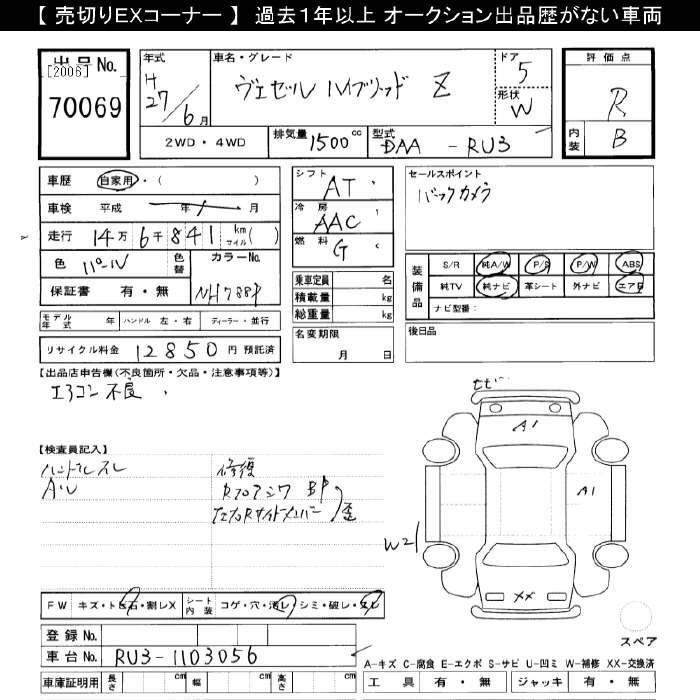 【 売切りEXコーナー 】 過去1年以上 オークション出品歴がない車両
出品No.
[2006]
70069
年式
H
27/6月
車名・グレード
ヴェゼル ハイブリッド Z
ドア
5
形状
W
2WD・4WD
排気量 1500 cc
型式 DAA - RU3
評価点
R
内装 B
車歴 自家用・( )
車検 平成 年 月
走行 14万6千841 km マイル( )
色 パール
色替
カラーNo.
NH788P
保証書 有・無
モデル年式 年 ハンドル 左・右 ディーラー・並行
リサイクル料金 12850 円 預託済
シフト
AT
冷房
AAC
燃料
G
乗車定員 名
積載量 kg
総重量 kg
名変期限
月 日
セールスポイント
バックカメラ
装備品
S/R 純A/W P/S P/W ABS
純TV 純ナビ 革シート 外ナビ エアB
ナビ型番:
後日品
【出品店申告欄(不良箇所・欠品・注意事項等)】
エアコン不良
【検査員記入】
ハンドルスレ
修復
Rフロアシワ
左右Rサイドメンバー 歪
A1
A1
W2
XX
FW キズ・トビ石・割レX
シート内装 コゲ・穴・汚レ・シミ・破レ・スレ
登録No.
車台No. RU3-1103056
車庫証明用 長さ cm 幅 cm 高さ cm
スペア
A-キズ C-腐食 E-エクボ S-サビ U-凹ミ W-補修 XX-交換済
工具 有・無 ジャッキ 有・無